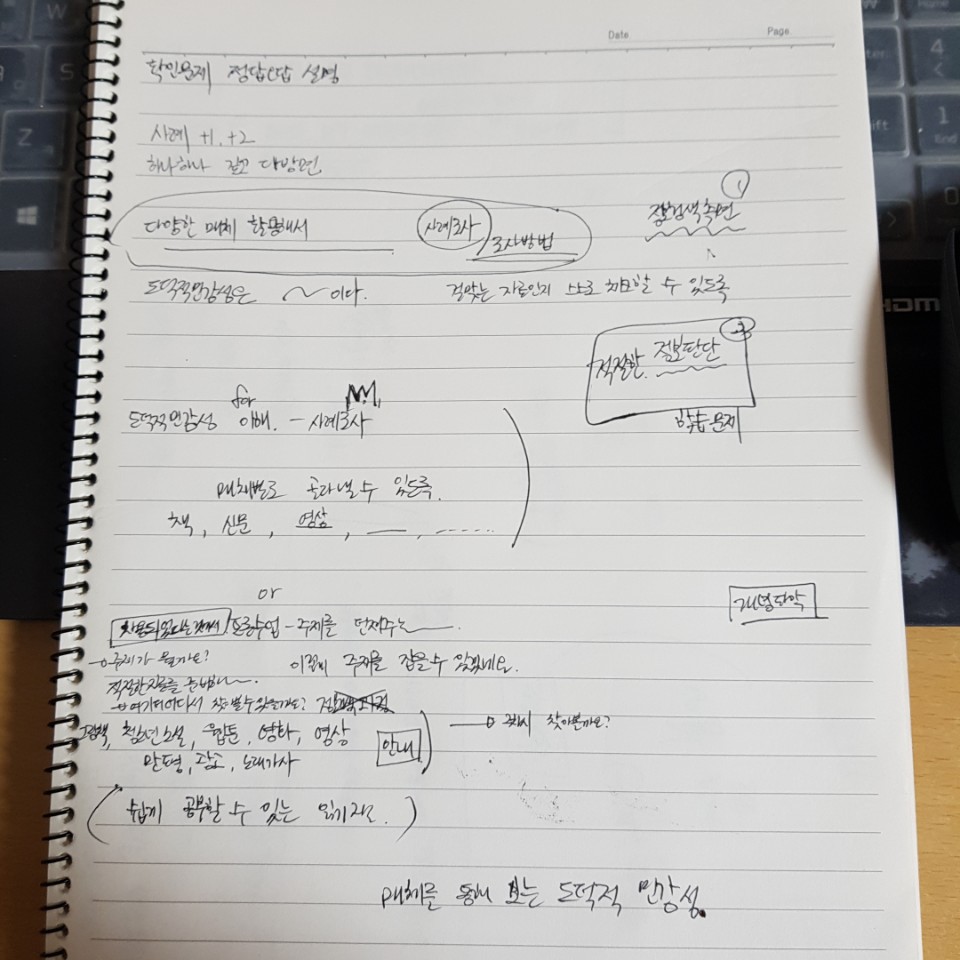 Date Page.
확인문제 정답오답 설명
사례 +1, +2
하나하나 깊고 다방면.
다양한 매체 활용해서 사례조사 조사방법
① 정보검색측면
도덕적민감성은 ~이다. 걸맞는 자료인지 스스로 체크할 수 있도록
② 적절한 정보판단
학습문제
도덕적민감성 for 이해. - 사례조사
매체별로 골라낼 수 있도록.
책, 신문, 영상,
or
개념파악
토론수업 - 주제를 던져주는
주제가 뭘까요? 이렇게 주제를 잡을 수 있겠네요.
적절한 자료를
여기저기다서 찾아볼 수 있을까요?
그림책, 청소년 소설, 웹툰, 영화, 영상 → 찾아볼까요?
만평, 광고, 노래가사 안내
(쉽게 공부할 수 있는 읽기자료.)
매체를 통해 보는 도덕적 민감성.
HDM